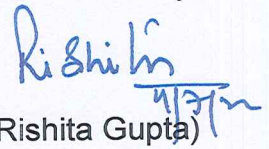 Rishita
4/7/22
(Rishita Gupta)